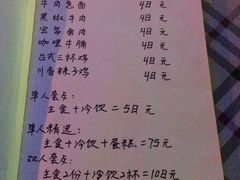 牛肉面 48元
黑椒牛肉 48元
肉 48元
咖喱牛腩 48元
台式三杯鸡 48元
川香辣子鸡 48元
单人套餐:
主食+冷饮=58元
单人精选:
主食+冷饮+蛋糕=75元
双人套餐:
主食2份+冷饮2杯=108元